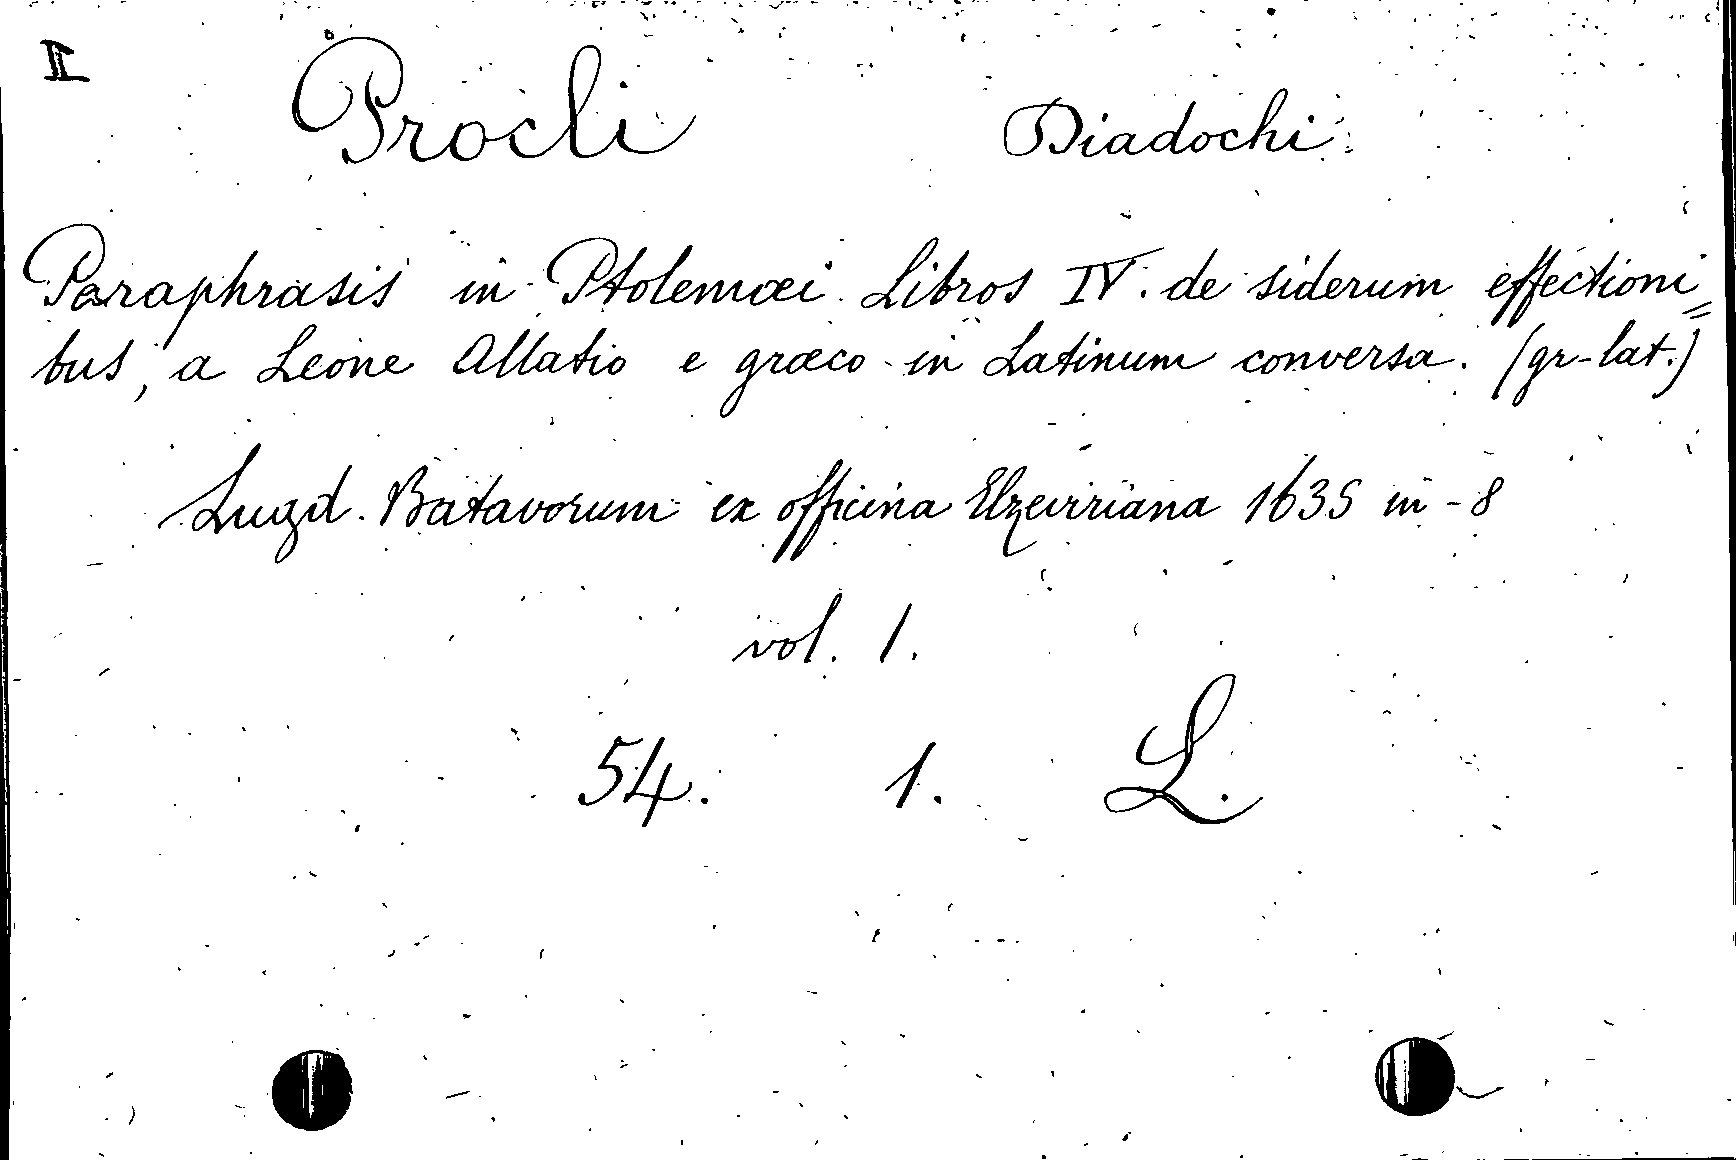 I
Procli Diadochi
Paraphrasis in Ptolemæi Libros IV. de siderum effectioni=
bus, a Leone Allatio e græco in Latinum conversa. (gr-lat.)
Lugd. Batavorum ex officina Elzeviriana 1635 in-8
vol. 1.
54. 1. L.